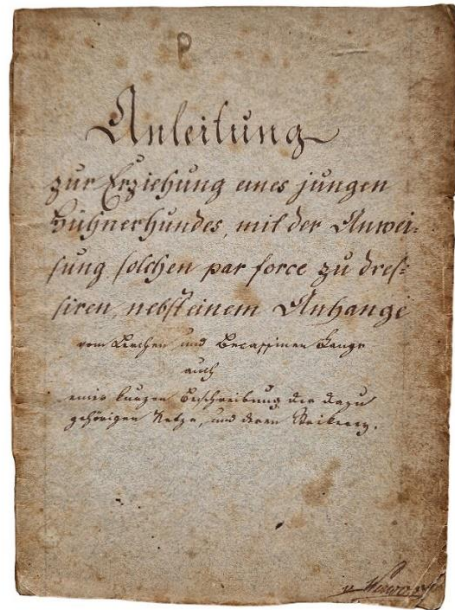 P
Anleitung
zur Erziehung eines jungen
Hühnerhundes, mit der Anwei-
sung solchen par force zu dres-
siren, nebst einem Anhange
vom Lerchen und Becassinen Fange
auch
einer kurzen Beschreibung der dazu
gehörigen Netze, und deren